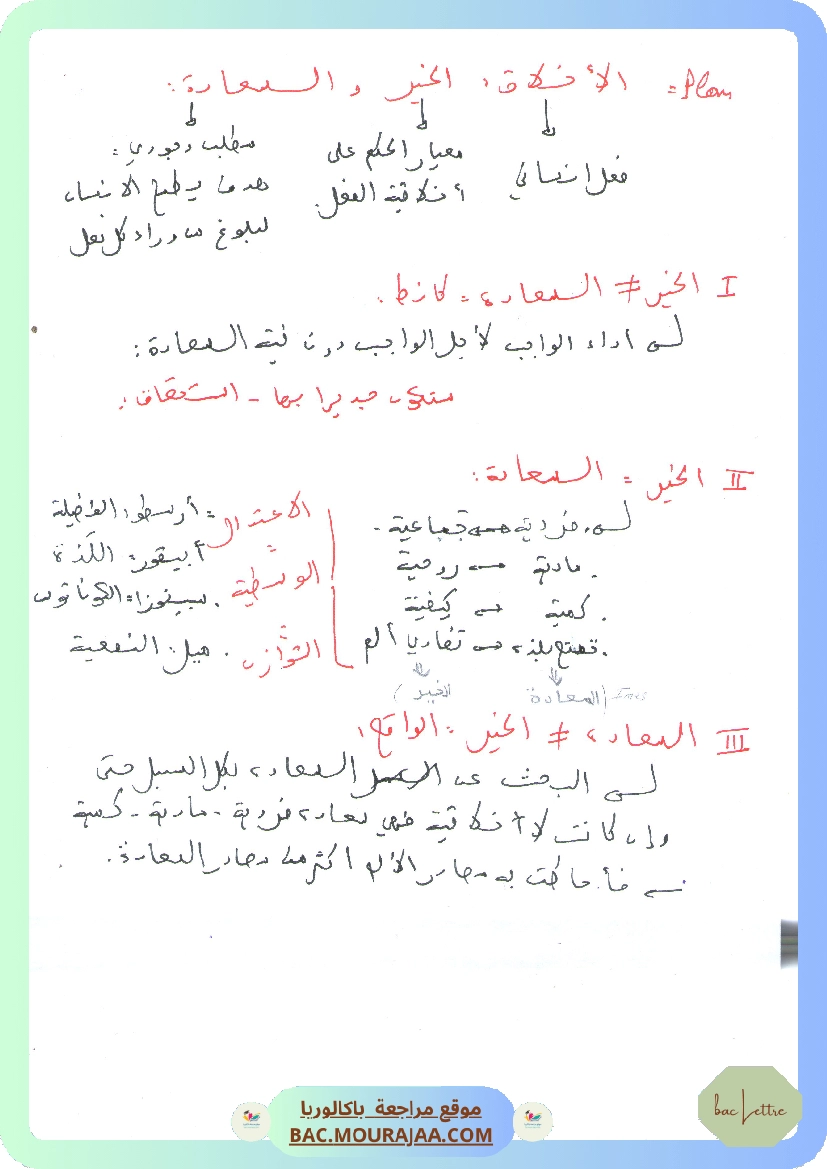 Plan = الأخلاق: الخير و السعادة:
فعل إنساني
معيار الحكم على أخلاقية الفعل.
مطلب وجودي:
هدف يطمح الانسان
لبلوغه من وراء كل فعل
I الخير ≠ السعادة: كانط.
أداء الواجب لأجل الواجب دون نية السعادة:
ستكون جديرا بها - استحقاق:
II الخير = السعادة:
فردية ← جماعية.
. مادية ← روحية
. كمية ← كيفية
. تمتع بلذة ← تفادي ألم
السعادة
(الخير
الاعتدال
=
الوسطية
=
التوازن
= أرسطو: الفضيلة
أبيقور: اللّذة
. سبينوزا: الكوناتوس
. ميل: النفعية
III السعادة ≠ الخير = الواقع:
البحث عن السعادة بكل السبل حتى
وإن كانت لا أخلاقية فهي سعادة فردية - مادية - كمية
ما حلت به مصادر الألم أكثر من مصادر السعادة.
bac Lettre
موقع مراجعة باكالوريا
BAC.MOURAJAA.COM